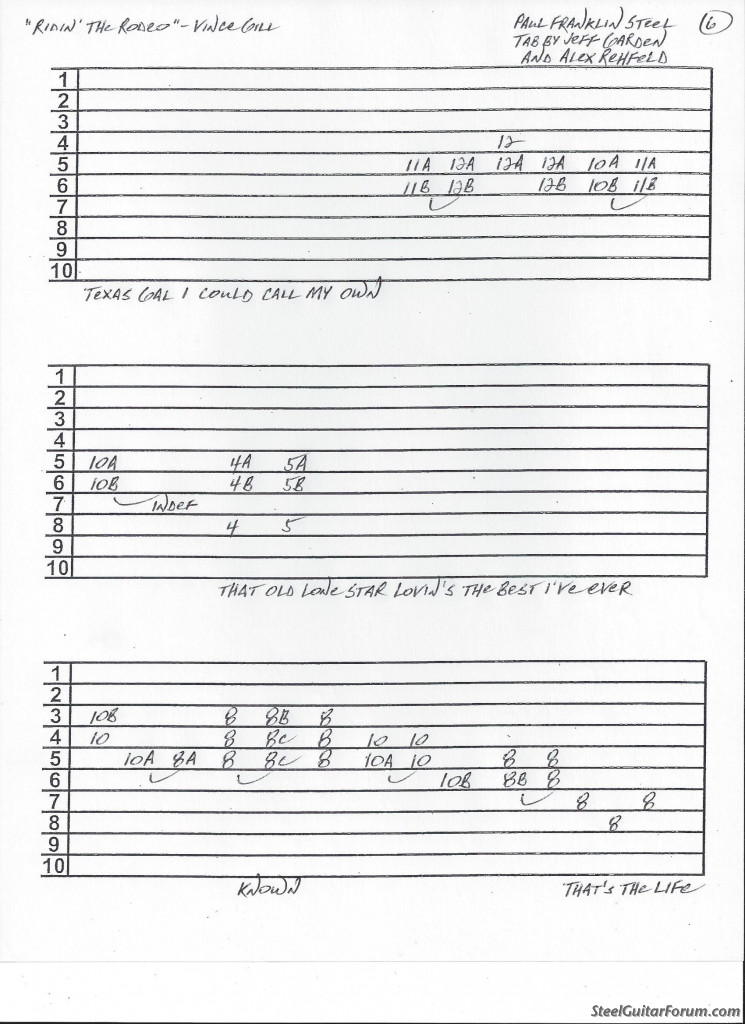 "RIDIN' THE RODEO" - VINCE GILL
PAUL FRANKLIN STEEL
TAB BY JEFF GARDEN
AND ALEX REHFELD
6
1
2
3
4 12
5 11A 12A 12A 12A 10A 11A
6 11B 12B 12B 10B 11B
7
8
9
10
TEXAS GAL I COULD CALL MY OWN
1
2
3
4
5 10A 4A 5A
6 10B 4B 5B
7 INDEF
8 4 5
9
10
THAT OLD LONE STAR LOVIN'S THE BEST I'VE EVER
1
2
3 10B 8 8B 8
4 10 8 8C 8 10 10
5 10A 8A 8 8C 8 10A 10 8 8
6 10B 8B 8
7 8 8
8 8
9
10
KNOWN THAT'S THE LIFE
SteelGuitarForum.com